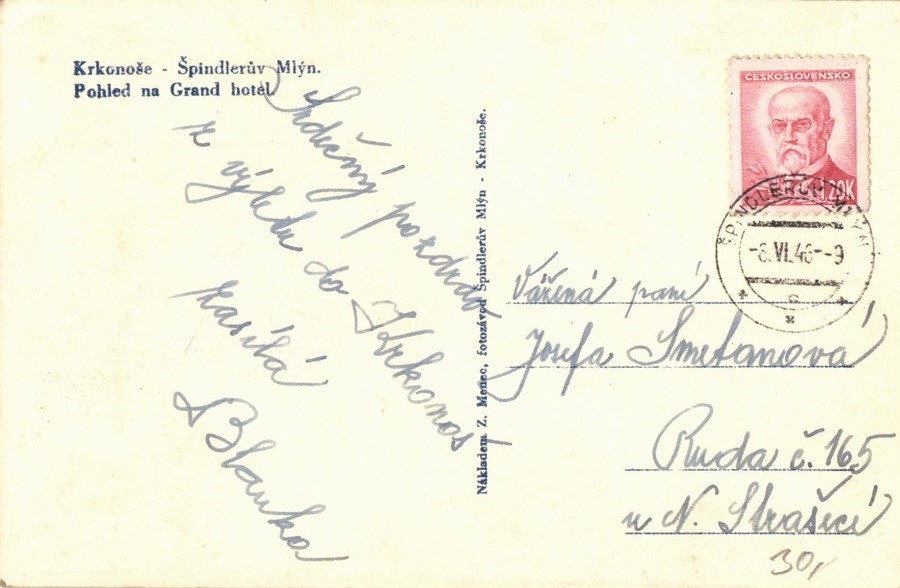 Krkonoše - Špindlerův Mlýn.
Pohled na Grand hotel.
Srdečný pozdrav
z výletu do Krkonoš
zasílá
Blanka
Nákladem Z. Menec, fotozávod Špindlerův Mlýn - Krkonoše.
ČESKOSLOVENSKO
1,20K
ŠPINDLERŮV MLÝN
-8.VI.46--9
c
Vážená paní
Josefa Smetanová
Ruda č. 165
u N. Strašecí
30,-